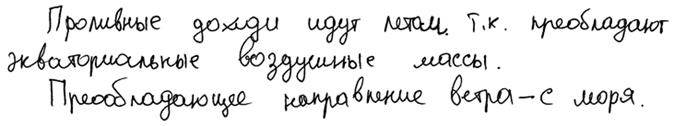 Проливные дожди идут летом, т.к. преобладают
экваториальные воздушные массы.
Преобладающее направление ветра – с моря.